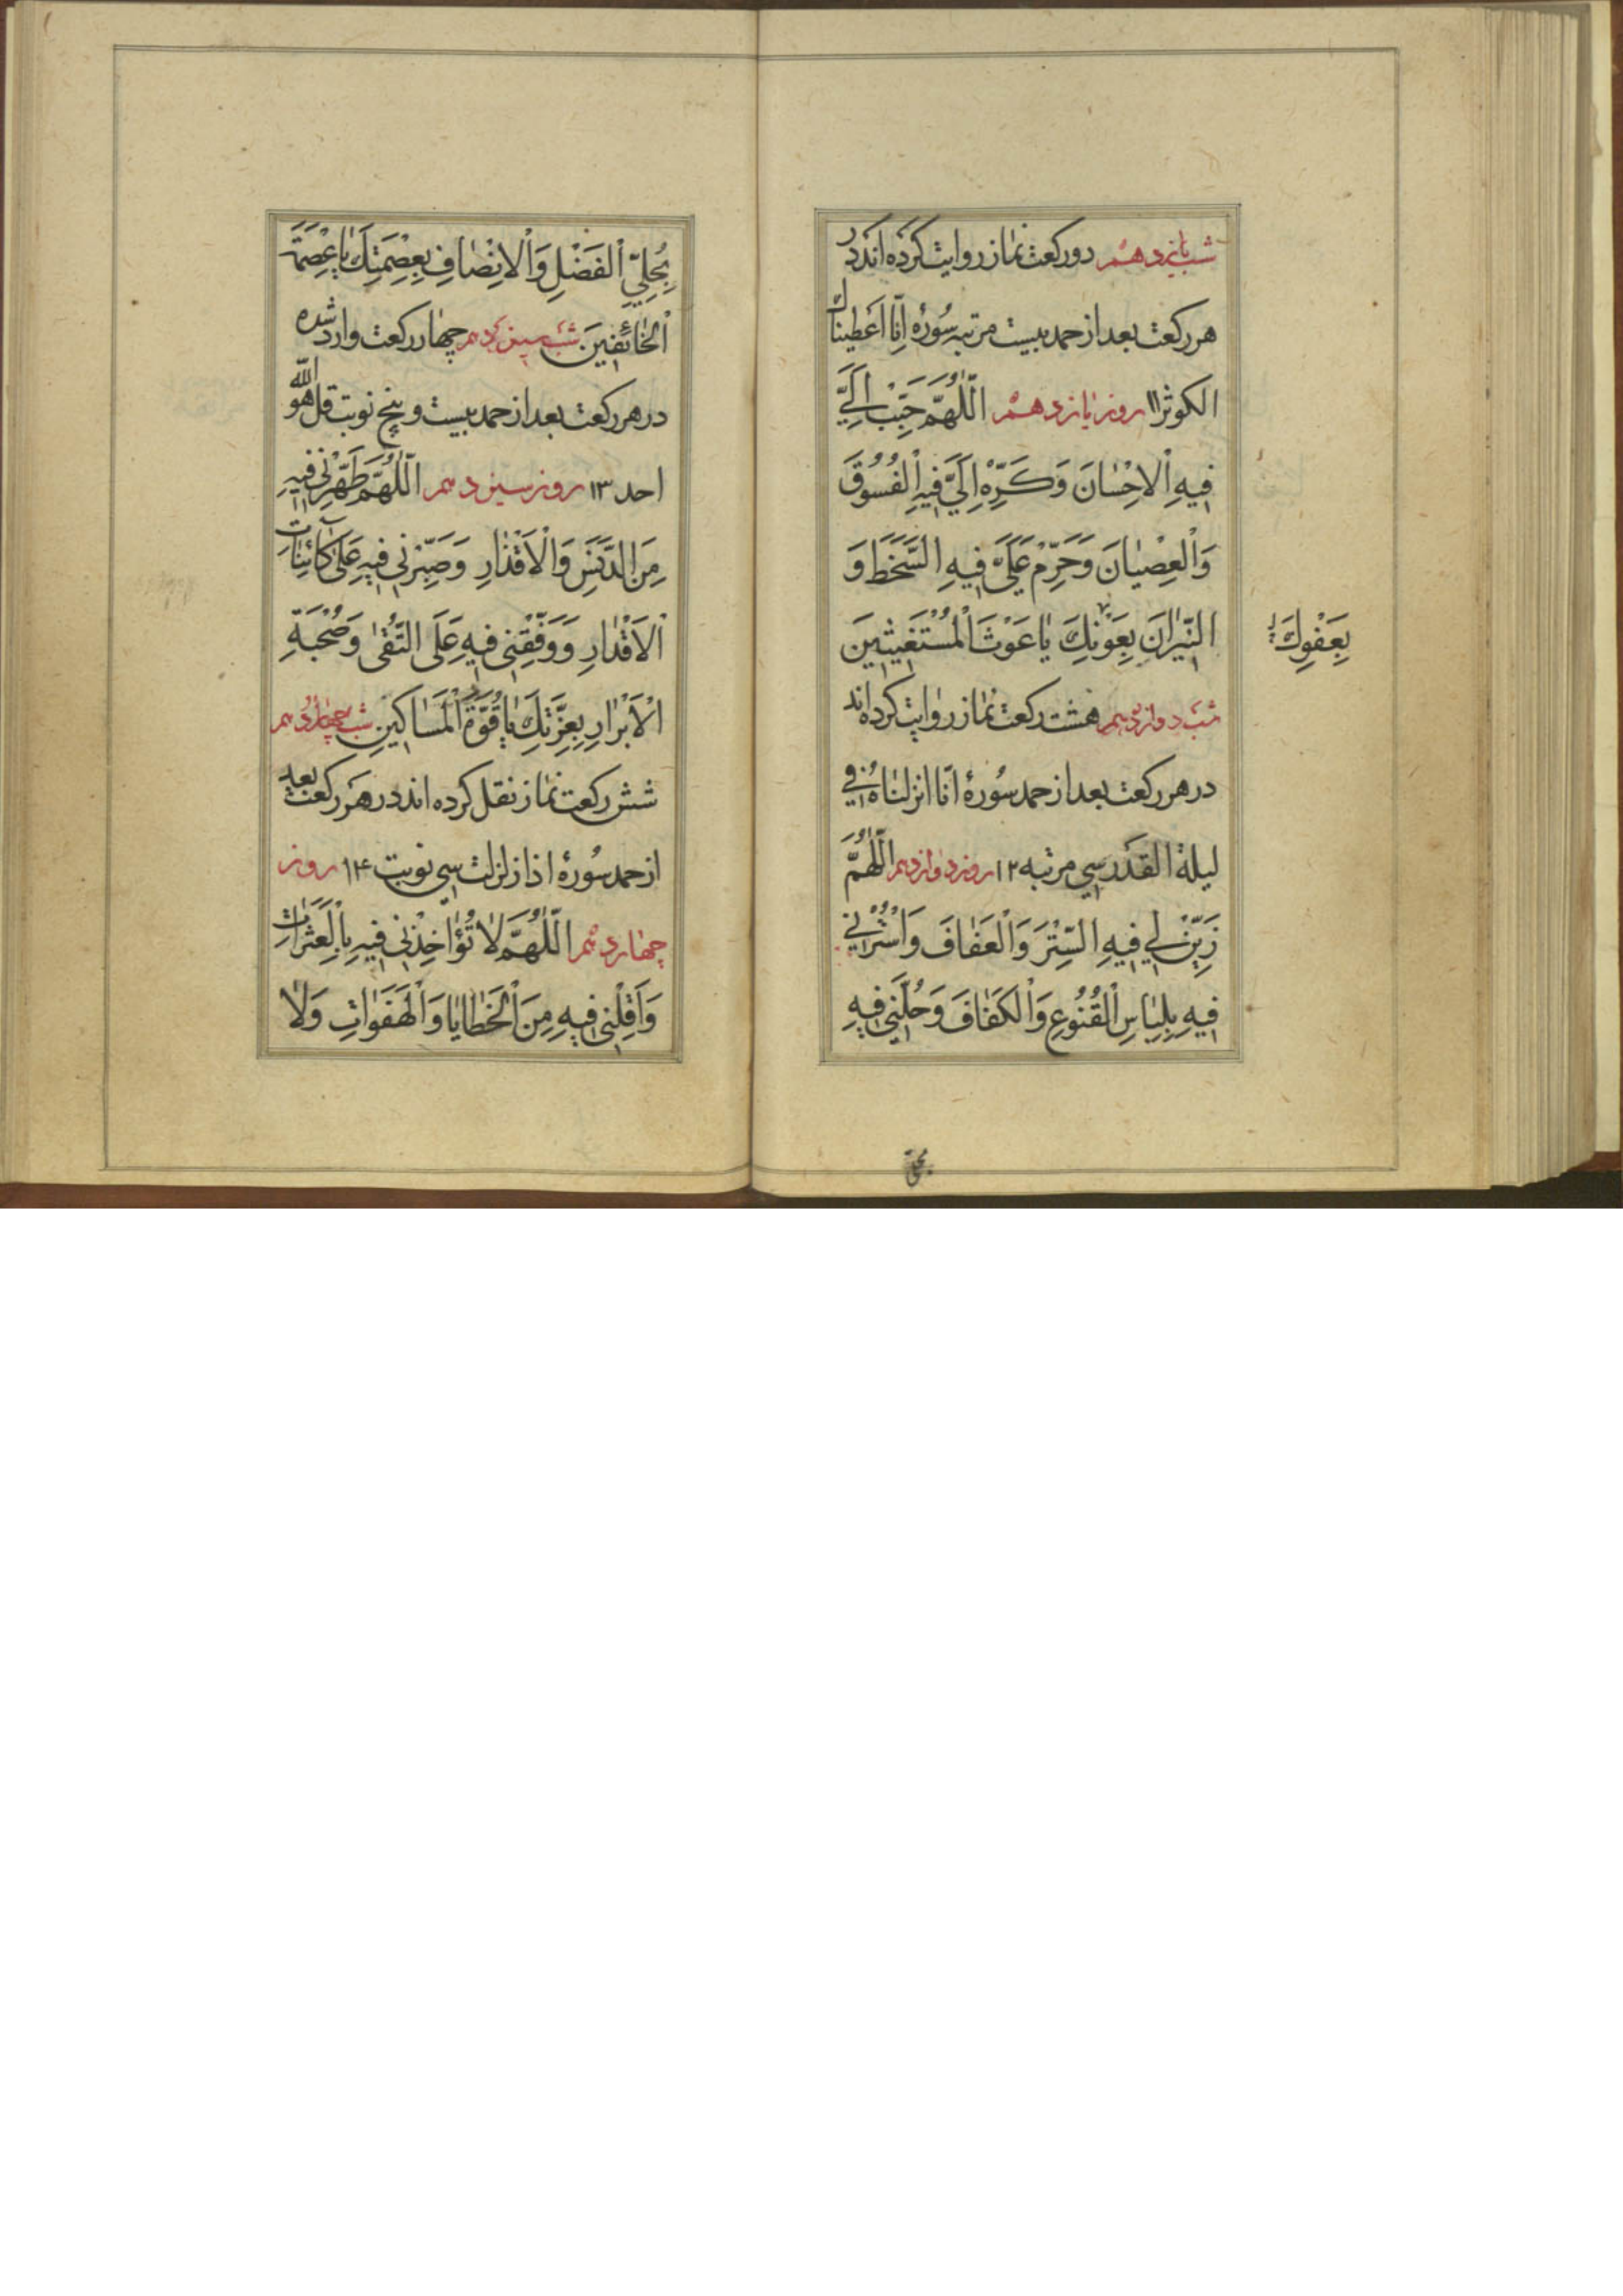 شب یازدهم دو رکعت نماز روایت کرده‌اند در
هر رکعت بعد از حمد بیست مرتبه سُورهٔ اِنّا اَعَطیناک
الکوثر ۱۱ روز یازدهم اَللّٰهُمَّ حَبِّبْ اِلَيَّ
فِیهِ اْلاِحْسٰانَ وَکَرِّهْ اِلَيَّ فِیهِ الْفُسُوقَ
وَالْعِصْیٰانَ وَحَرِّمْ عَلَيَّ فِیهِ السَّخَطَ وَ
النّیرٰانَ بِعَوْنِكَ یٰا غَوْثَ الْمُسْتَغیثینَ
بِعَفْوِكَ
شب دوازدهم هشت رکعت نماز روایت کرده‌اند
در هر رکعت بعد از حمد سُورهٔ انّا انزلناهُ في
لیلة القدر سی مرتبه ۱۲ روز دوازدهم اَللّٰهُمَّ
زَیِّنْ لي فِیهِ السِّتْرَ وَالْعَفٰافَ وَاسْتُرْني
فِیهِ بِلِبٰاسِ الْقُنُوعِ وَالْکَفٰافَ وَحُلَّنِي فِیهِ
بِحُلِيِّ الْفَضْلِ وَالْاِنْصٰافِ بِعِصْمَتِكَ یٰا عِصْمَةَ
الْخٰائِفینَ شب سیزدهم چهار رکعت وارد شده
در هر رکعت بعد از حمد بیست و پنج نوبت قل هو الله
احد ۱۳ روز سیزدهم اَللّٰهُمَّ طَهِّرْني فِیهِ
مِنَ الدَّنَسِ وَالْاَقْذٰارِ وَصَبِّرْني فِیهِ عَلىٰ کٰائِنٰاتِ
الْاَقْدٰارِ وَوَفِّقْنِي فِیهِ عَلَى التُّقىٰ وَصُحْبَةِ
الْاَبْرٰارِ بِعِزَّتِكَ یٰا قُوَّةَ الْمَسٰاکینِ شب چهاردهم
شش رکعت نماز نقل کرده‌اند در هر رکعت بعد
از حمد سُورهٔ اذا زلزلت سی نوبت ۱۴ روز
چهاردهم اَللّٰهُمَّ لاٰ تُؤٰاخِذْني فِیهِ بِالْعَثَرٰاتِ
وَاَقِلْنِي فِیهِ مِنَ الْخَطٰایٰا وَالْهَفَوٰاتِ وَلاٰ